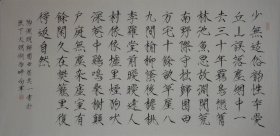 少無適俗韻性本愛
丘山誤落塵網中一
去三十年羈鳥戀舊
林池魚思故淵開荒
南野際守拙歸園田
方宅十餘畝草屋八
九間榆柳蔭後簷桃
李羅堂前曖曖遠人
村依依墟里煙狗吠
深巷中雞鳴桑樹顛
戶庭無塵雜虛室有
餘閒久在樊籠裏復
得返自然
陶淵明歸園田居其一書於